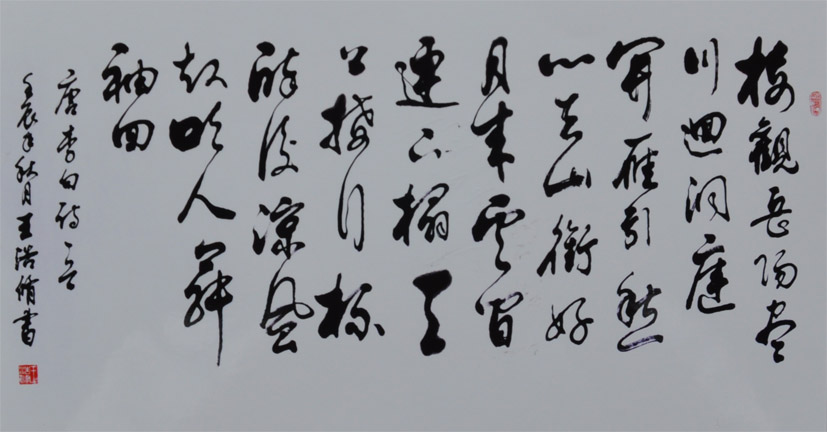 楼觀岳阳尽
川迴洞庭
開雁引愁
心去山銜好
月来雲间
連下榻天
上接行杯
醉後凉風
起吹人舞
袖回
唐李白诗一首
壬辰年秋月王浩脩書